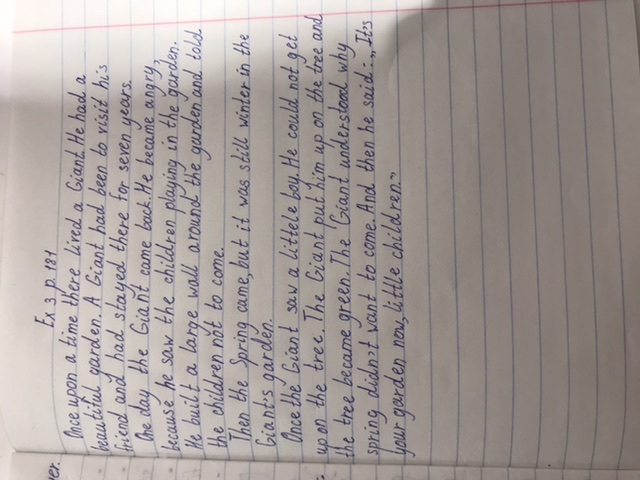 ver.
Ex 3 p. 181
Once upon a time there lived a Giant. He had a
beautiful garden. A Giant had been to visit his
friend and had stayed there for seven years.
One day the Giant come back. He became angry,
because he saw the children playing in the garden.
He built a large wall around the garden and told
the children not to come.
Then the Spring came, but it was still winter in the
Giant's garden.
Once the Giant saw a littele boy. He could not get
up on the tree. The Giant put him up on the tree and
the tree became green. The Giant understood why
spring didn't want to come. And then he said: „It's
your garden now, little children."